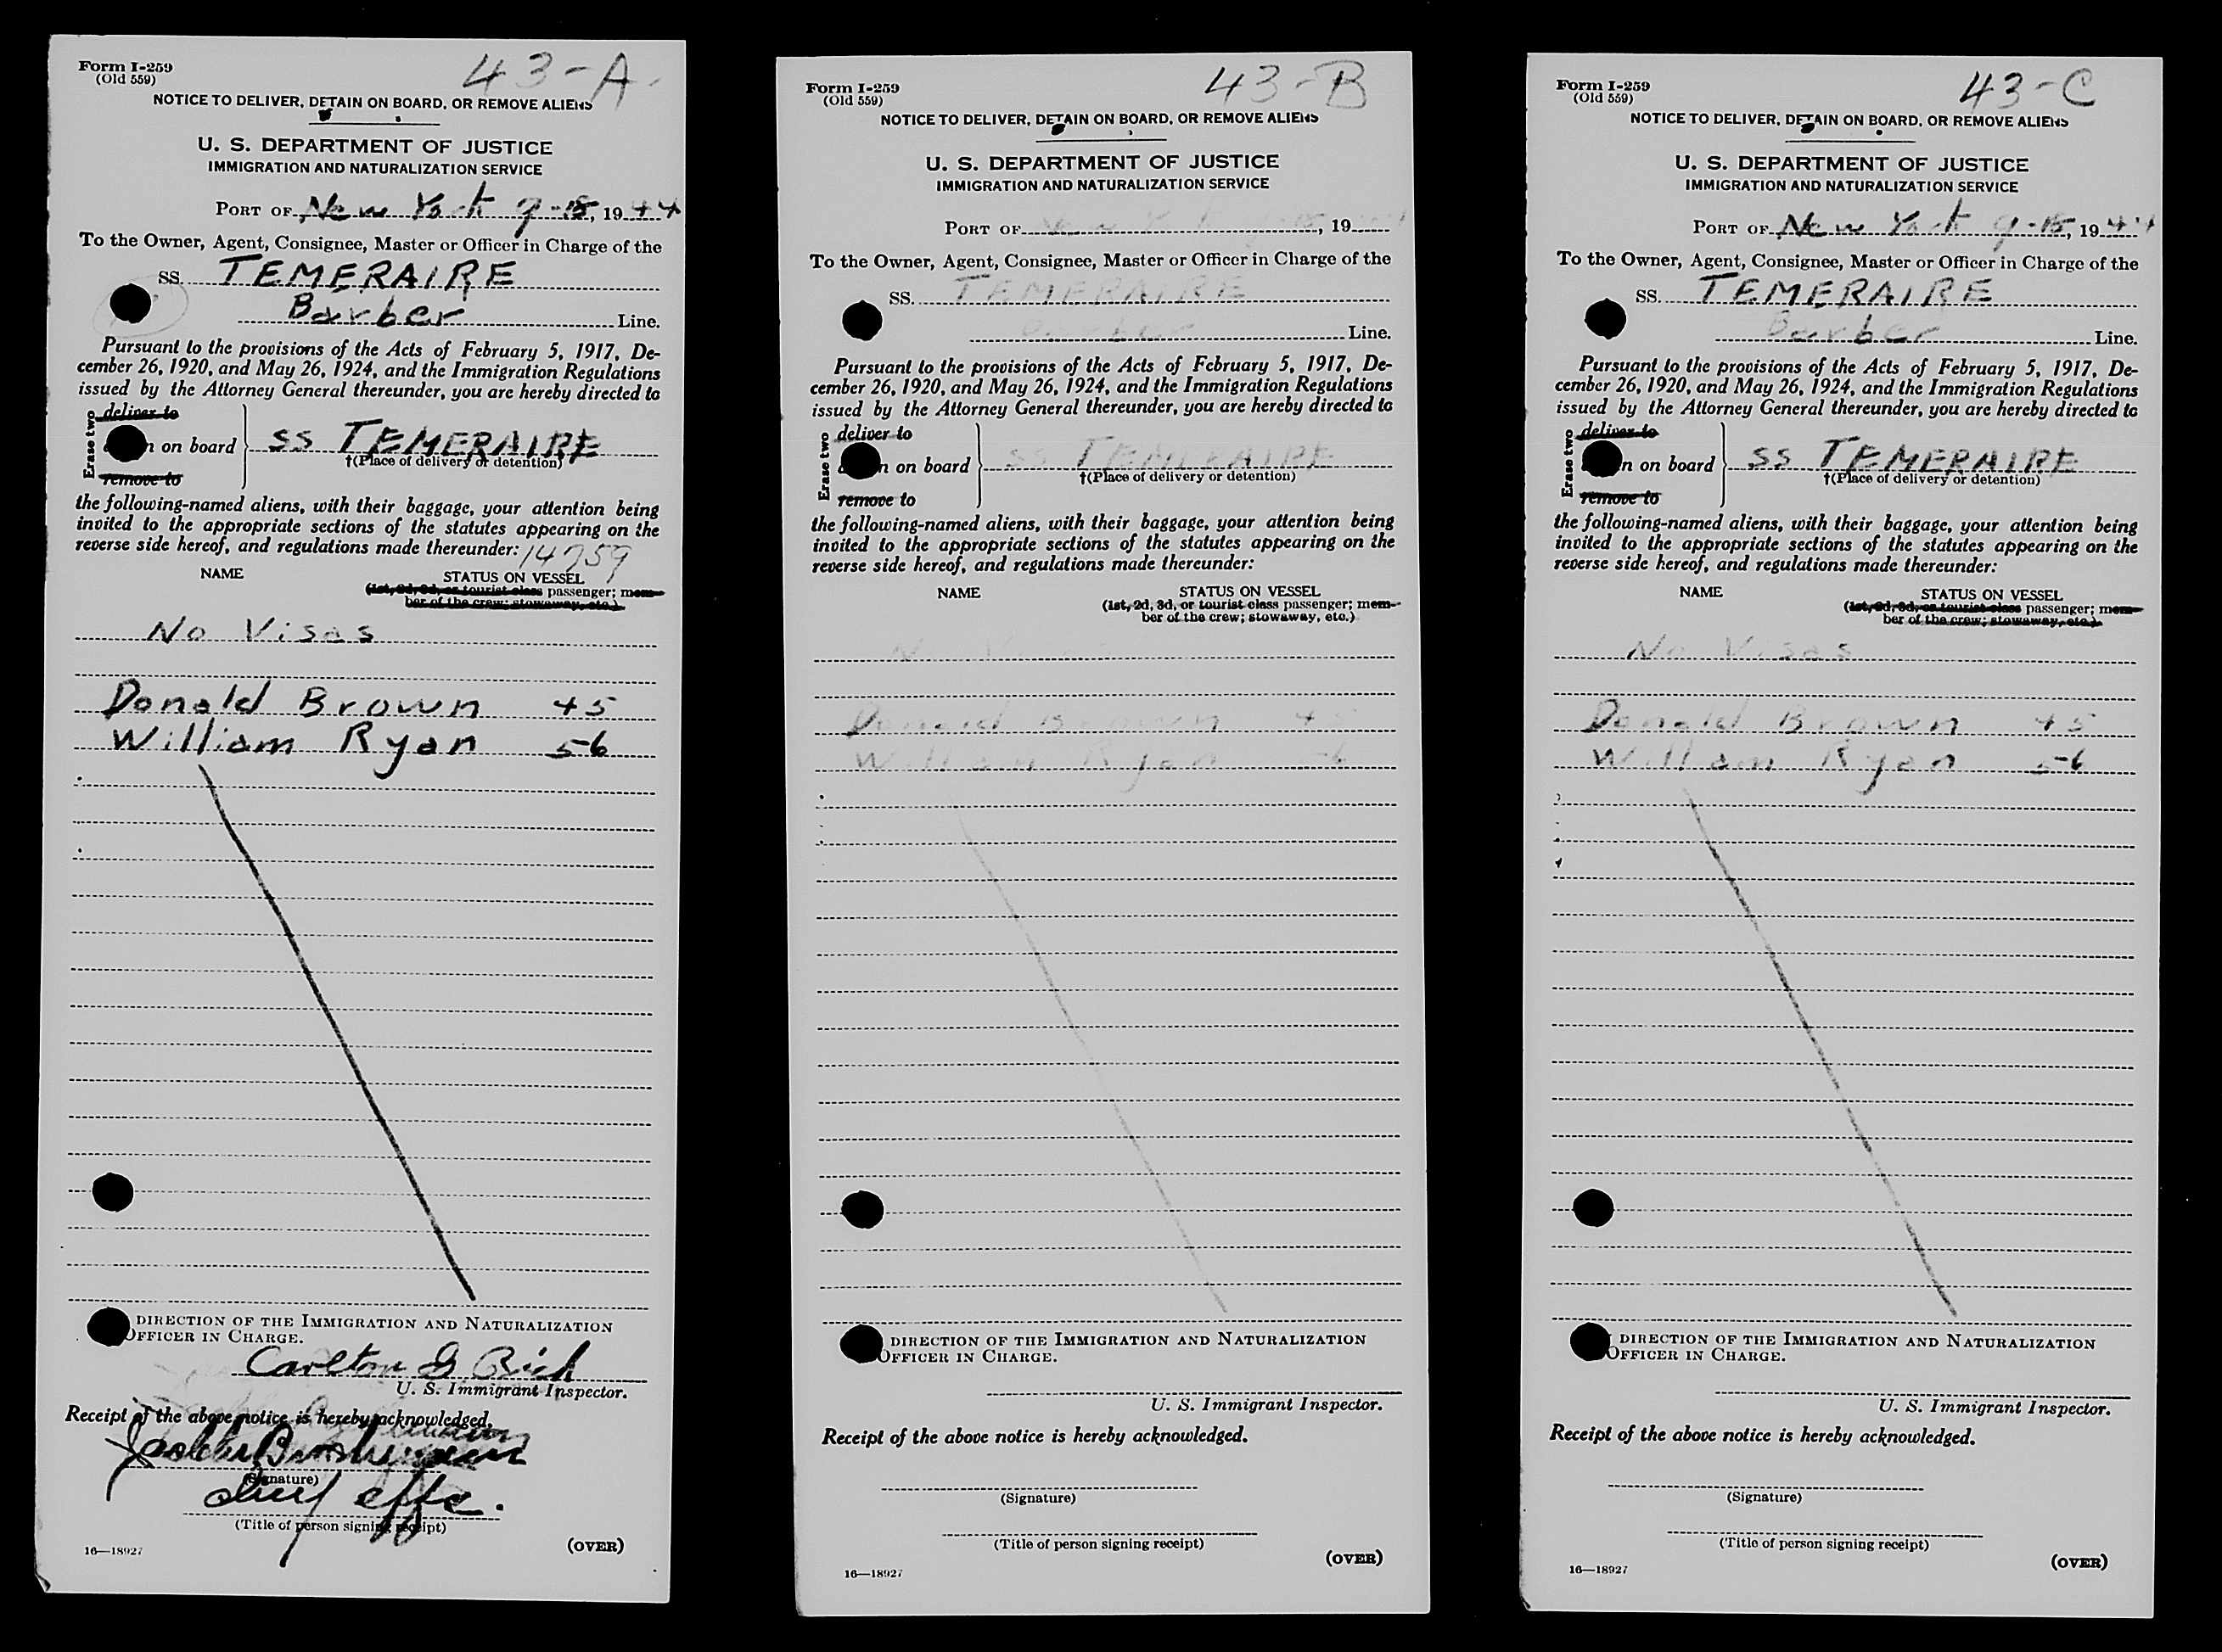 43-A
Form I-259
(Old 559)
NOTICE TO DELIVER, DETAIN ON BOARD, OR REMOVE ALIENS
U. S. DEPARTMENT OF JUSTICE
IMMIGRATION AND NATURALIZATION SERVICE
PORT OF New York 9-18, 1944
To the Owner, Agent, Consignee, Master or Officer in Charge of the
SS. TEMERAIRE
Barber Line.
Pursuant to the provisions of the Acts of February 5, 1917, De-
cember 26, 1920, and May 26, 1924, and the Immigration Regulations
issued by the Attorney General thereunder, you are hereby directed to
Erase two
deliver to
n on board
remove to
SS TEMERAIRE
†(Place of delivery or detention)
the following-named aliens, with their baggage, your attention being
invited to the appropriate sections of the statutes appearing on the
reverse side hereof, and regulations made thereunder: 14759
NAME STATUS ON VESSEL
(1st, 2d, 3d, or tourist class passenger; mem-
ber of the crew; stowaway, etc.)
No Visas
Donald Brown 45
William Ryan 56
DIRECTION OF THE IMMIGRATION AND NATURALIZATION
OFFICER IN CHARGE.
Carlton G Rich
U. S. Immigrant Inspector.
Receipt of the above notice is hereby acknowledged.
(Signature)
chief offc.
(Title of person signing receipt)
16—18927 (OVER)
43-B
Form I-259
(Old 559)
NOTICE TO DELIVER, DETAIN ON BOARD, OR REMOVE ALIENS
U. S. DEPARTMENT OF JUSTICE
IMMIGRATION AND NATURALIZATION SERVICE
PORT OF New Y 18, 19
To the Owner, Agent, Consignee, Master or Officer in Charge of the
SS. TEMERAIRE
Barber Line.
Pursuant to the provisions of the Acts of February 5, 1917, De-
cember 26, 1920, and May 26, 1924, and the Immigration Regulations
issued by the Attorney General thereunder, you are hereby directed to
Erase two
deliver to
n on board
remove to
SS TEMERAIRE
†(Place of delivery or detention)
the following-named aliens, with their baggage, your attention being
invited to the appropriate sections of the statutes appearing on the
reverse side hereof, and regulations made thereunder:
NAME STATUS ON VESSEL
(1st, 2d, 3d, or tourist class passenger; mem-
ber of the crew; stowaway, etc.)
No V
Donald Brown 45
William Ryan 56
DIRECTION OF THE IMMIGRATION AND NATURALIZATION
OFFICER IN CHARGE.
U. S. Immigrant Inspector.
Receipt of the above notice is hereby acknowledged.
(Signature)
(Title of person signing receipt)
16—18927 (OVER)
43-C
Form I-259
(Old 559)
NOTICE TO DELIVER, DETAIN ON BOARD, OR REMOVE ALIENS
U. S. DEPARTMENT OF JUSTICE
IMMIGRATION AND NATURALIZATION SERVICE
PORT OF New York 9-18, 1944
To the Owner, Agent, Consignee, Master or Officer in Charge of the
SS. TEMERAIRE
Barber Line.
Pursuant to the provisions of the Acts of February 5, 1917, De-
cember 26, 1920, and May 26, 1924, and the Immigration Regulations
issued by the Attorney General thereunder, you are hereby directed to
Erase two
deliver to
n on board
remove to
SS TEMERAIRE
†(Place of delivery or detention)
the following-named aliens, with their baggage, your attention being
invited to the appropriate sections of the statutes appearing on the
reverse side hereof, and regulations made thereunder:
NAME STATUS ON VESSEL
(1st, 2d, 3d, or tourist class passenger; mem-
ber of the crew; stowaway, etc.)
No Visas
Donald Brown 45
William Ryan 56
DIRECTION OF THE IMMIGRATION AND NATURALIZATION
OFFICER IN CHARGE.
U. S. Immigrant Inspector.
Receipt of the above notice is hereby acknowledged.
(Signature)
(Title of person signing receipt)
16—18927 (OVER)